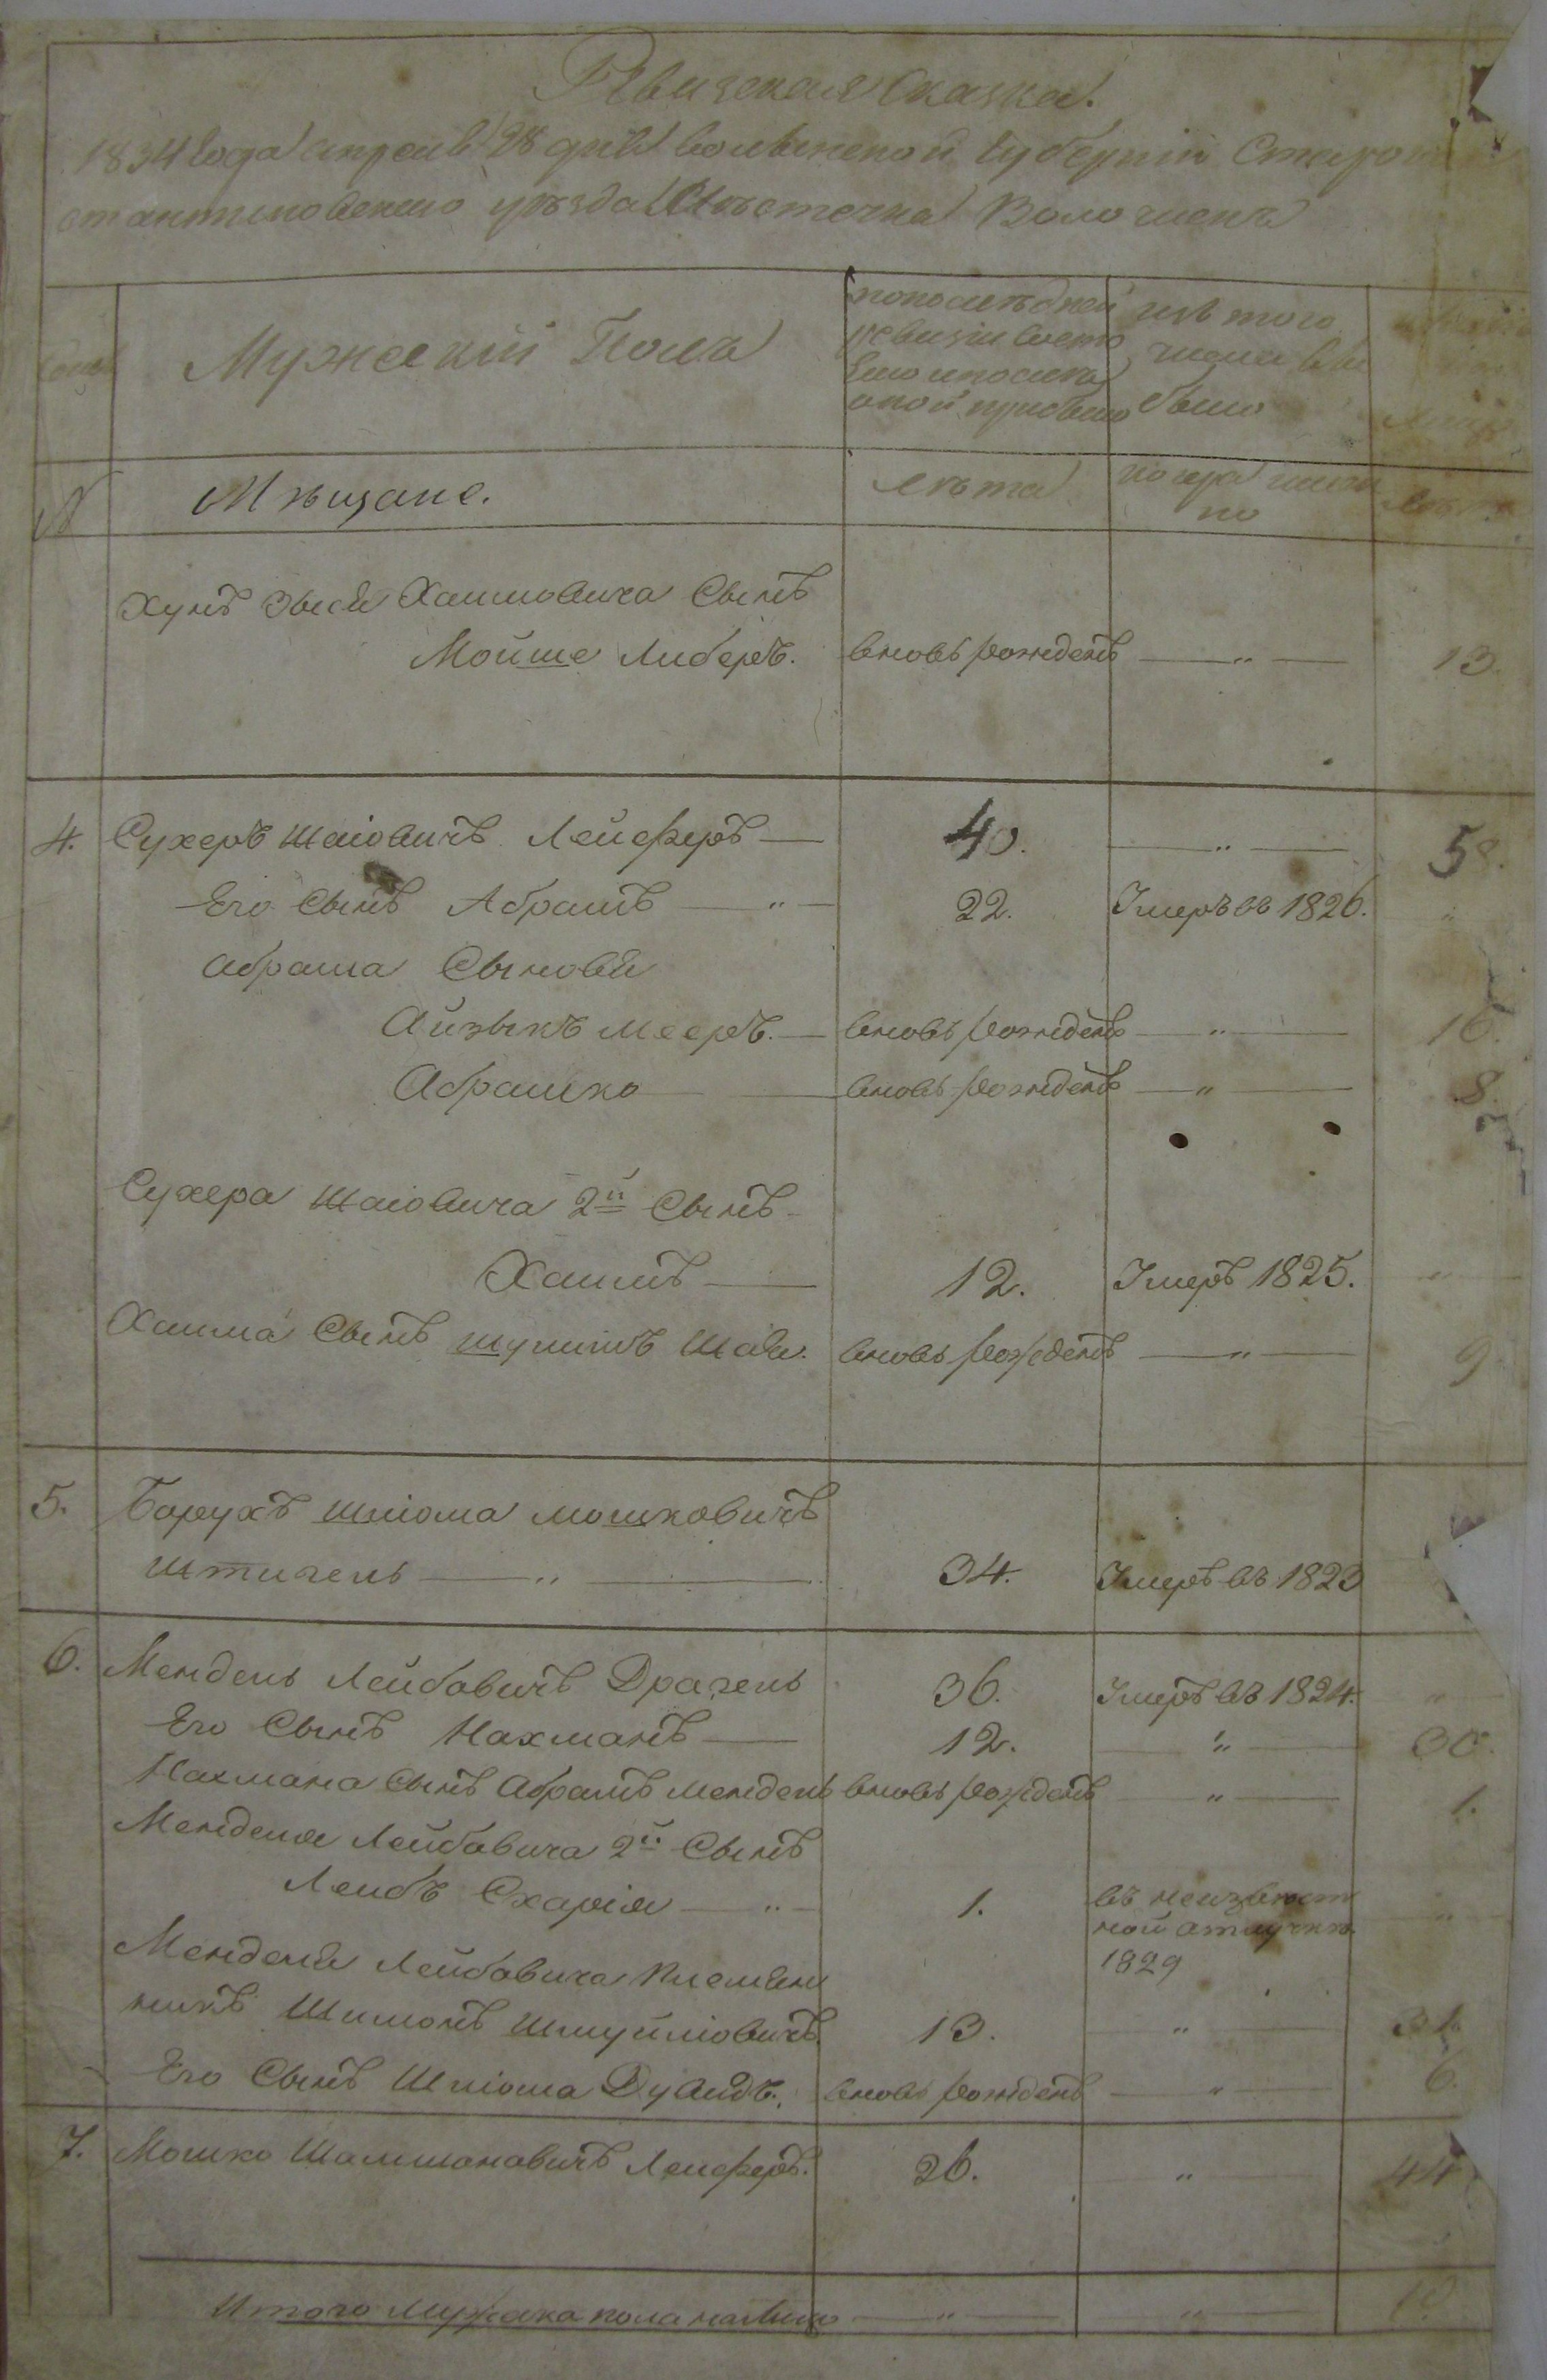 Ревизская Сказка.
1834 года апреля 28 дня Волынской Губерніи Старокон
стантиновскаго уѣзда Мѣстечка Волочискъ
Мужескій Полъ
По последней
ревизіи состо
яло и после
оной прибыло
изъ того
числа вы
было
№
Мѣщане.
лѣта
когда имен
но
лѣта
Хунъ Зыси Хаимовича Сынъ
Мойше Либеръ. вновь рожденъ — „ — 13.
4. Сухеръ Шаіовичъ Лейферъ — 40. — „ — 58.
Его Сынъ Абрамъ — „ — 22. Умеръ въ 1826. „
Абрама Сыновья
Айзыкъ Мееръ. — вновь рожденъ — „ — 16.
Абрамко — вновь рожденъ — „ — 8.
Сухера Шаіовича 2й Сынъ
Хаимъ — 12. Умеръ 1825. „
Хаима Сынъ Шулимъ Шая. вновь рожденъ — „ — 9
5. Борухъ Шліома Мошковичъ
Штигель — „ — 34. Умеръ въ 1823
6. Мендель Лейбовичъ Драгель 36. Умеръ въ 1824. „
Его Сынъ Нахманъ — 12. — „ — 30.
Нахмана Сынъ Абрамъ Мендель вновь рожденъ — „ — 1.
Менделя Лейбовича 2й Сынъ
Лейбъ Схарія — „ — 1. въ неизвест
ной отлучкѣ „
1829
Менделя Лейбовича племян
никъ Шимонъ Шмуйліовичъ. 13. — „ — 31.
Его Сынъ Шліома Дувидъ. вновь рожденъ — „ — 6.
7. Мошко Шамшоновичъ Лейферъ. 26. — „ — 44
Итого мужска пола налицо — „ — — „ —